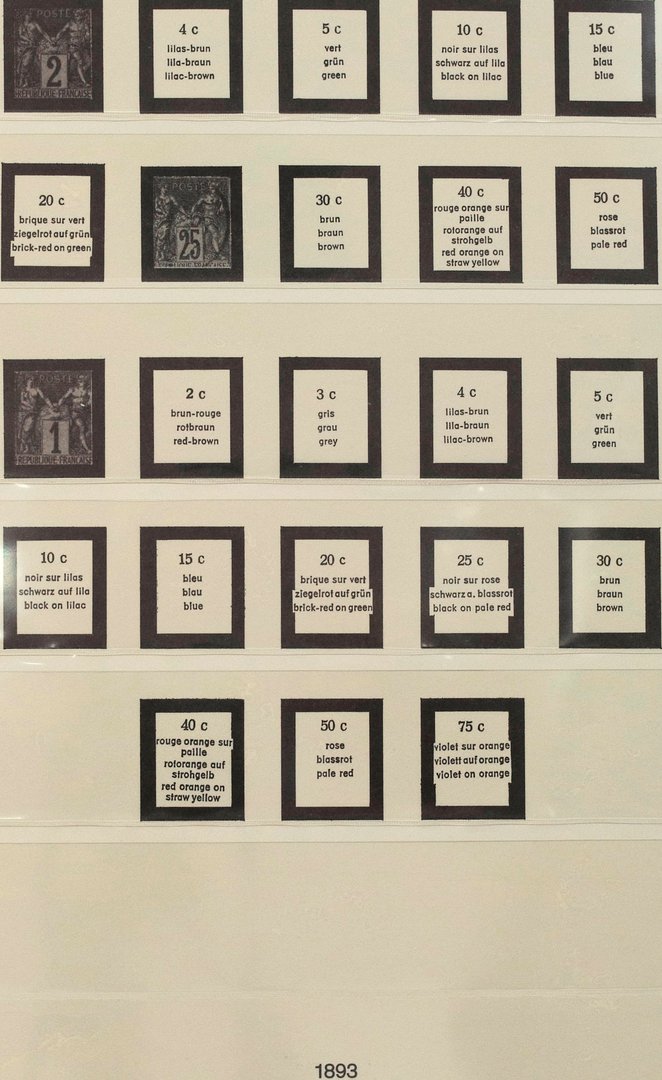 2
REPUBLIQUE FRANCAISE
4 c
lilas-brun
lila-braun
lilac-brown
5 c
vert
grün
green
10 c
noir sur lilas
schwarz auf lila
black on lilac
15 c
bleu
blau
blue
20 c
brique sur vert
ziegelrot auf grün
brick-red on green
POSTE
25
30 c
brun
braun
brown
40 c
rouge orange sur
paille
rotorange auf
strohgelb
red orange on
straw yellow
50 c
rose
blassrot
pale red
POSTE
1
REPUBLIQUE FRANCAISE
2 c
brun-rouge
rotbraun
red-brown
3 c
gris
grau
grey
4 c
lilas-brun
lila-braun
lilac-brown
5 c
vert
grün
green
10 c
noir sur lilas
schwarz auf lila
black on lilac
15 c
bleu
blau
blue
20 c
brique sur vert
ziegelrot auf grün
brick-red on green
25 c
noir sur rose
schwarz a. blassrot
black on pale red
30 c
brun
braun
brown
40 c
rouge orange sur
paille
rotorange auf
strohgelb
red orange on
straw yellow
50 c
rose
blassrot
pale red
75 c
violet sur orange
violett auf orange
violet on orange
1893